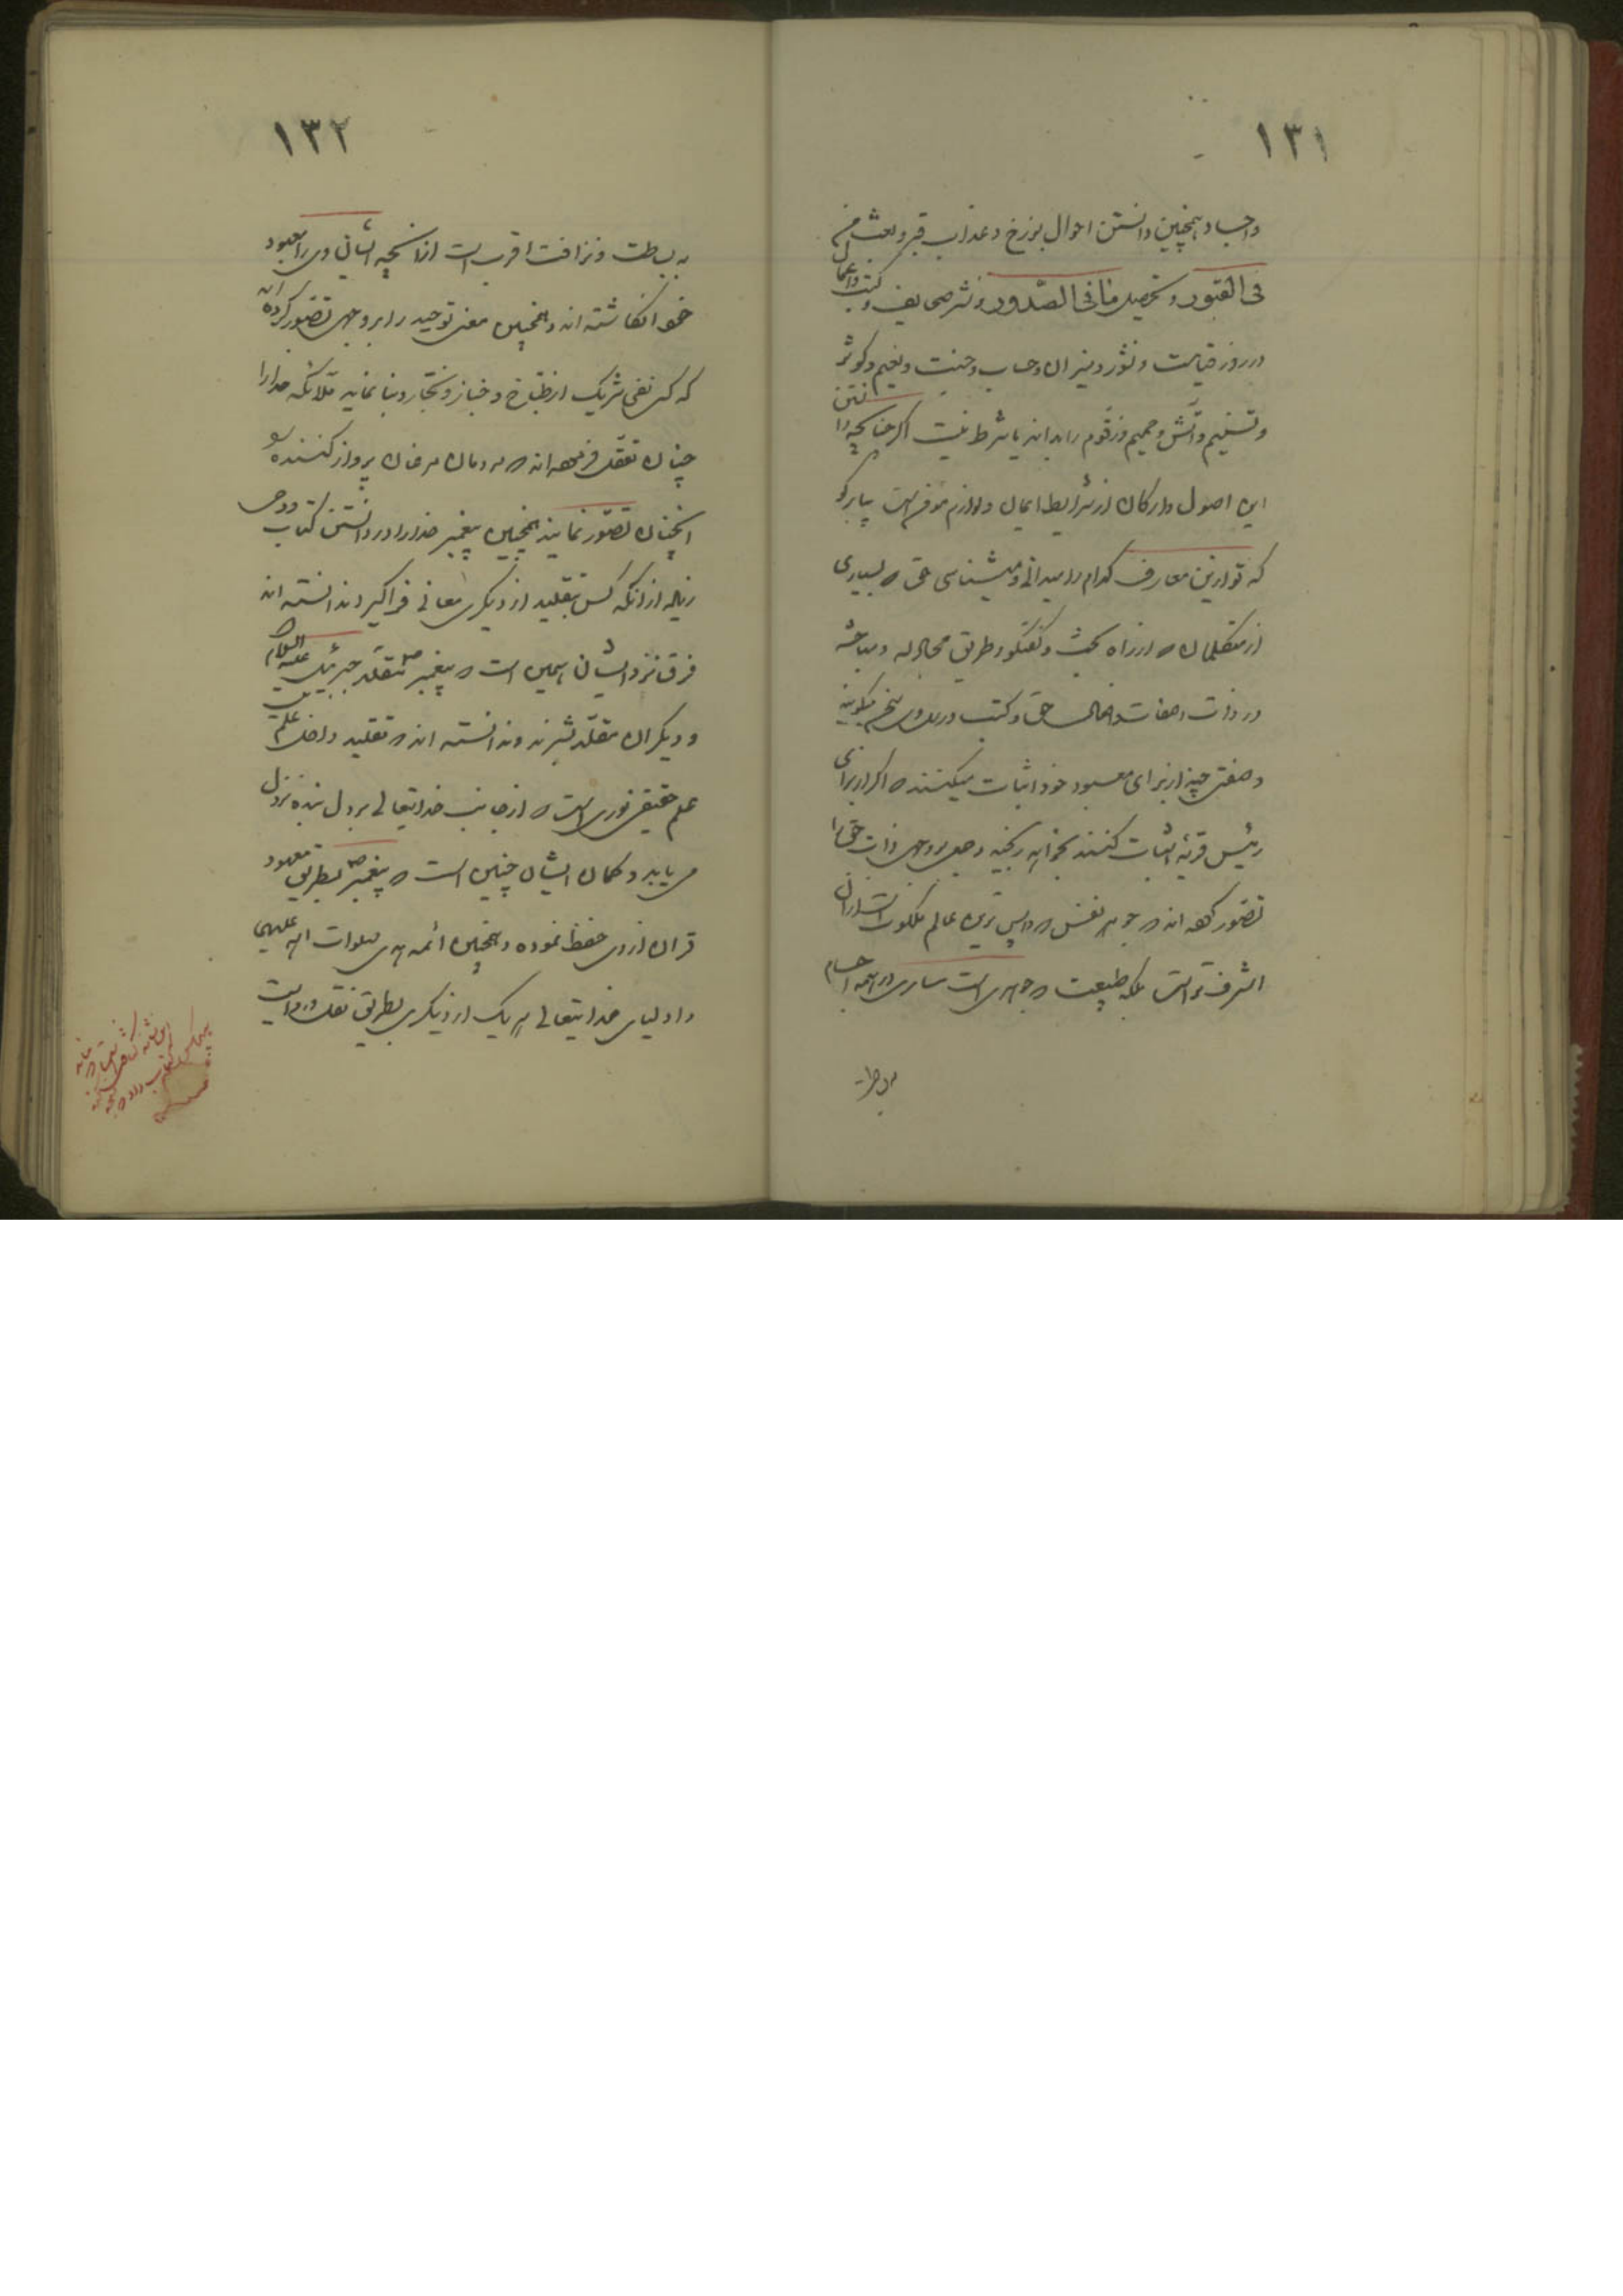 ۱۳۱
واجساد و همچنین دانستن احوال برزخ و عذاب قبر و بعث من
فی القبور و تحصیل ما فی الصّدور و نشر صحایف و کتب و اعمال
در روز قیامت و نشور و میزان و حساب و جنت و نعیم و کوثر
و تسنیم و آتش و حمیم و زقّوم را بداند یا شرط نیست اگر چنانچه دانستن
این اصول و ارکان از شرایط ایمان و لوازم مؤمن است بیا بر گو
که تو ازین معارف کدام را میدانی و میشناسی حتی که بسیاری
از متکلمان که از راه بحث و گفتگو و طریق مجادله و مباحثه
در ذات و صفات و افعال حق و کتب و رسل وی سخن میگویند
و صفتی چند از برای معبود خود اثبات میکنند که اگر از برای
رئیس قریهٔ اثبات کنند بخواهد رنجید و بر وجهی ذات حق را
تصور کرده اند که جوهر نفس که پس ترین عالم ملکوتست از ان
اشرف تر است بلکه طبیعت که جوهری است ساری در همه اجسام
به بساطت
۱۳۲
به بساطت و نزافت اقرب است از آنچه ایشان وی را معبود
خود انگاشته اند و همچنین معنی توحید را بر وجهی تصور کرده اند
که کسی نفی شریک از طبّاخ و خباز و نجّار و بنا نماید ملائکه خدا را
چنان تعقل فرموده اند که مردمان مرغان پرواز کننده را
انچنان تصوّر نمایند همچنین پیغمبر خدا را در دانستن کتاب و وحی
زیاده از آنکه کسی بتقلید از دیگری معانی فرا گیرد ندانسته اند
فرق نزد ایشان همین است که پیغمبر ص مقلّد جبرئیل علیه السلام
و دیگران مقلّد بشرند و ندانسته اند که تقلید داخل علم نیست
علم حقیقی نوری است که از جانب خدایتعالی بر دل بنده نزول
می یابد و گمان ایشان چنین است که پیغمبر ص بطریق معهود
قران از وی حفظ نموده و همچنین ائمه هدی صلوات الله علیهم
و اولیای خدایتعالی هر یک از دیگری بطریق نقل و روایت